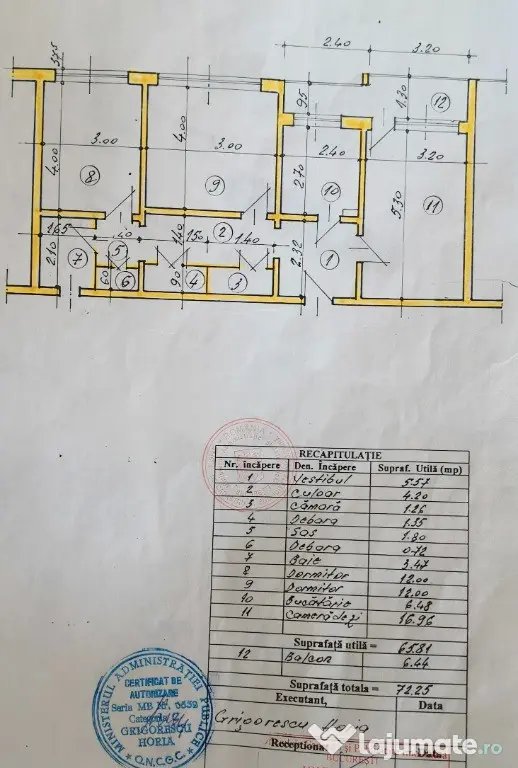 2.40 3.20
3.75
95 1.30 12
4.00 3.00 4.00 3.00 2.40 3.20
8 9 2.70 10 5.30 11
1.65 .40 1.40 1.50 2 1.40
2.10 7 5 2.32 1
60 6 90 4 3
RECAPITULAŢIE
Nr. încăpere Den. Încăpere Supraf. Utilă (mp)
1 Vestibul 5.57
2 Culoar 4.20
3 Cămară 1.26
4 Debara 1.35
5 Sas 1.80
6 Debara 0.72
7 Baie 3.47
8 Dormitor 12.00
9 Dormitor 12.00
10 Bucătărie 6.48
11 Cameră de zi 16.96
Suprafaţă utilă = 65.81
12 Balcon 6.44
Suprafaţă totala = 72.25
Executant, Data
Grigorescu Horia
Receptionat Data
BUCUREŞTI
ROMÂNIA
MINISTERUL ADMINISTRAŢIEI PUBLICE
CERTIFICAT DE
AUTORIZARE
Seria MB Nr. 0532
Categoria
GRIGORESCU
HORIA
O.N.C.G.C.
Lajumate.ro